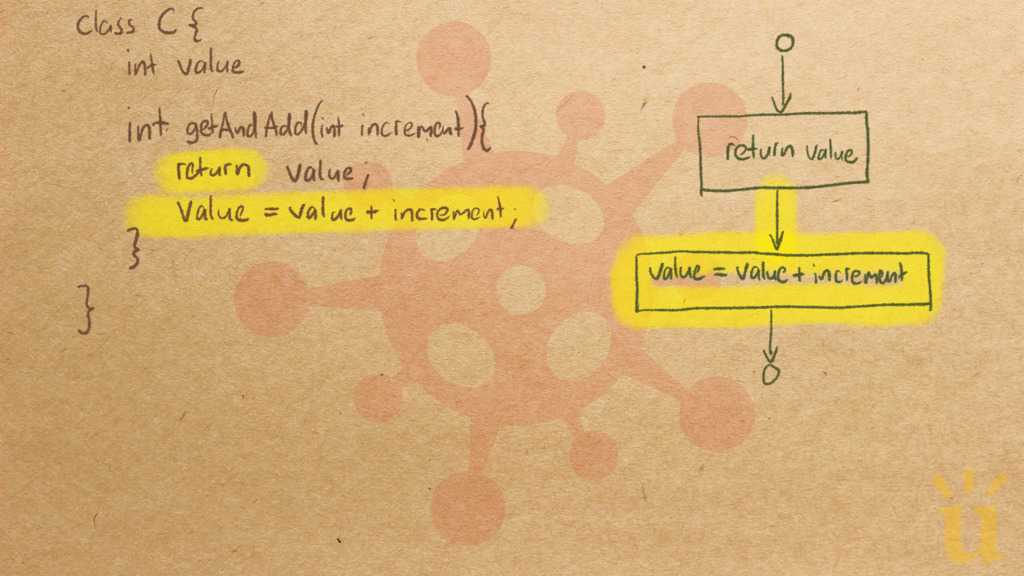 class C {
int value
int getAndAdd(int increment){
return value;
value = value + increment;
}
}
return value
value = value + increment
u